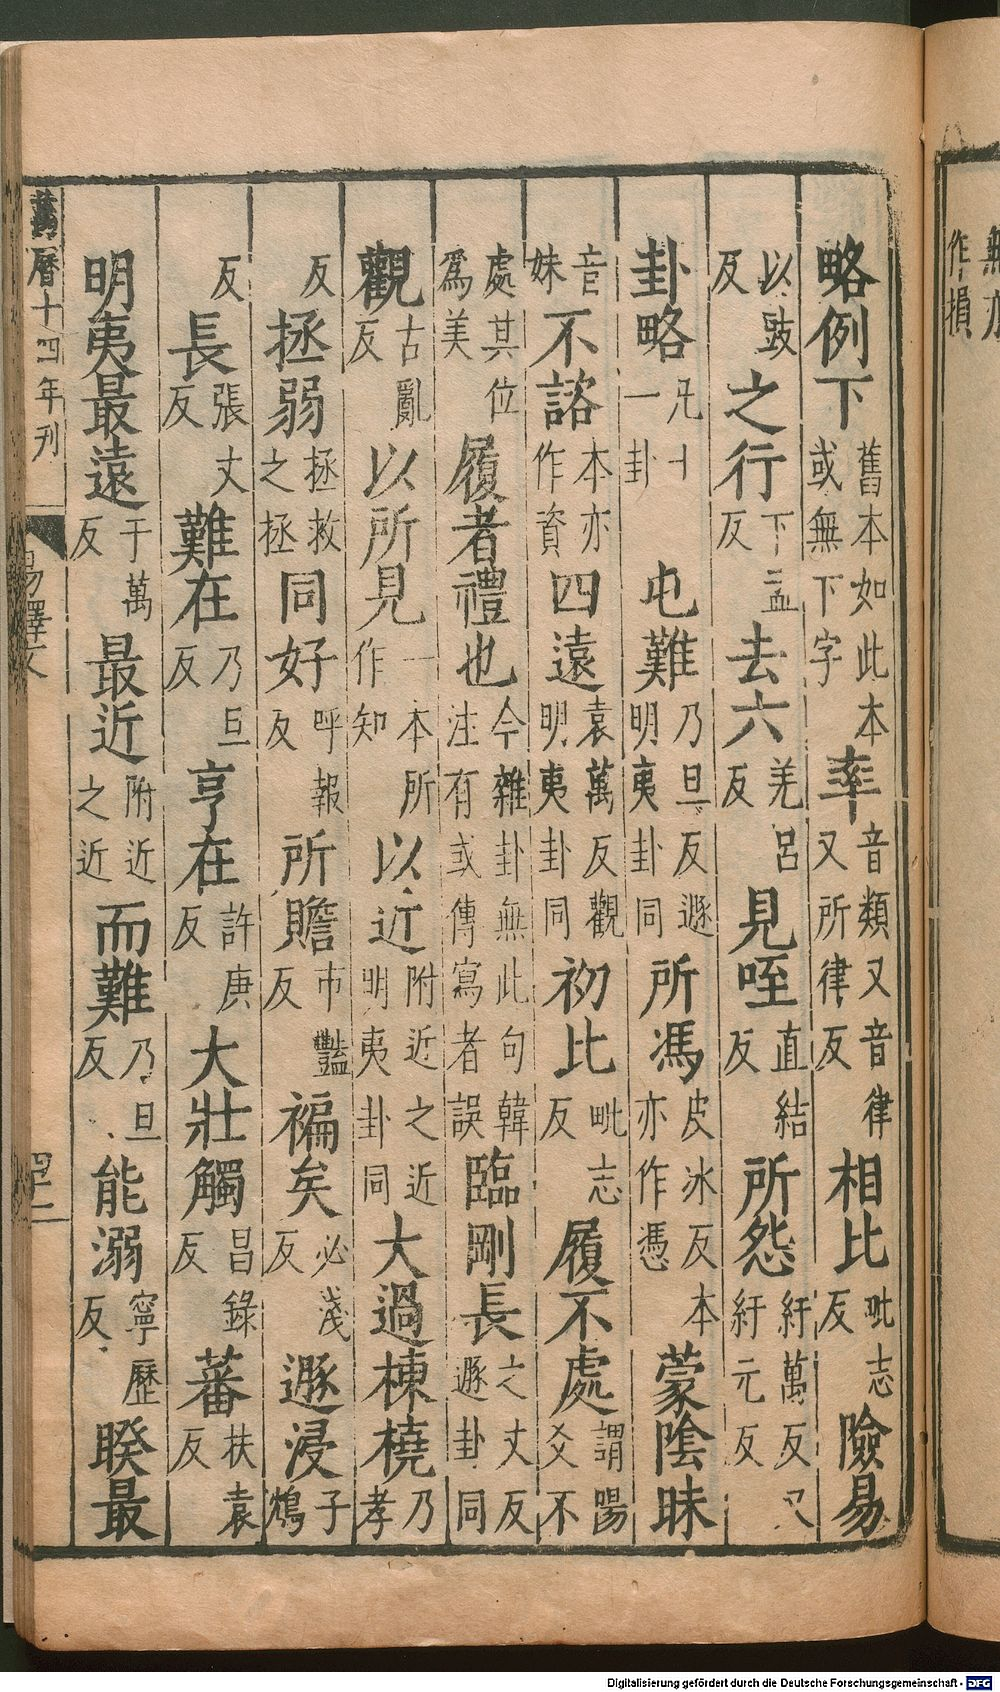 略例下舊本如此本或無下字率音類又音律又所律反相比毗志反險易
以豉反之行下孟反去六羌呂反見咥直結反所怨紆萬反又紆元反
卦略凡十一卦屯難乃旦反遯明夷卦同所馮皮冰反本亦作憑蒙陰昧
音妹不諮本亦作資四遠袁萬反觀明夷卦同初比毗志反履不處謂陽爻不
處其位爲美履者禮也今雜卦無此句韓注有或傳寫者誤臨剛長之丈反遯卦同
觀古亂反以所見一本作所知以近附近之近明夷卦同大過棟橈乃孝
反拯弱拯救之拯同好呼報反所贍市豔反褊矣必淺反遯浸子鴆
反長張丈反難在乃旦反亨在許庚反大壯觸昌錄反蕃扶袁反
明夷最遠于萬反最近附近之近而難乃旦反能溺寧歷反睽最
萬曆十四年刊
易釋文
四十二
無亦
作損
Digitalisierung gefördert durch die Deutsche Forschungsgemeinschaft - DFG